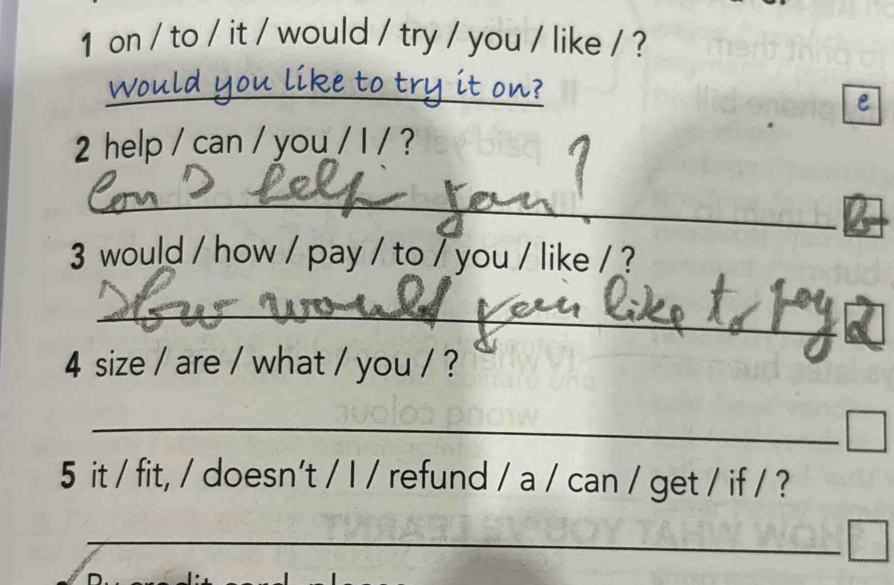 1 on / to / it / would / try / you / like / ?
Would you like to try it on?
e
2 help / can / you / I / ?
Can I help you?
b
3 would / how / pay / to / you / like / ?
How would you like to pay
4 size / are / what / you / ?
5 it / fit, / doesn't / I / refund / a / can / get / if / ?